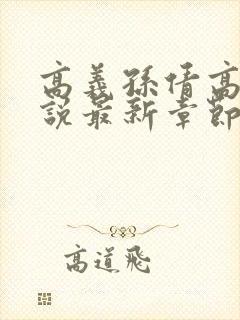 高義孫倩高
說最新章節
高道飛